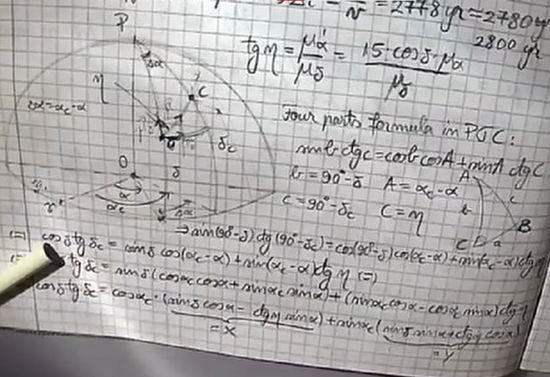 = 2778 yr = 2780 yr
2800 yr
tg η = μα/μδ = 15·cosδ·μα/μδ
P
Δα
η
C
Δα = αc - α
δc
O
δ
γ
αc
Δα
Four parts formula in PGC:
sin b ctg c = cos b cos A + sin A ctg C
b = 90° - δ A = αc - α
c = 90° - δc C = η
A
b
c
B
C
a
⇒ sin(90° - δ) ctg(90° - δc) = cos(90° - δ) cos(αc - α) + sin(αc - α) ctg η
(=) cosδ tgδc = sinδ cos(αc - α) + sin(αc - α) ctg η (=)
tgδc = sinδ (cosαc cosα + sinαc sinα) + (sinαc cosα - cosαc sinα) ctg η
cosδ tgδc = cosαc · (sinδ cosα - ctg η sinα) + sinαc (sinδ sinα + ctg η cosα)
= X = Y